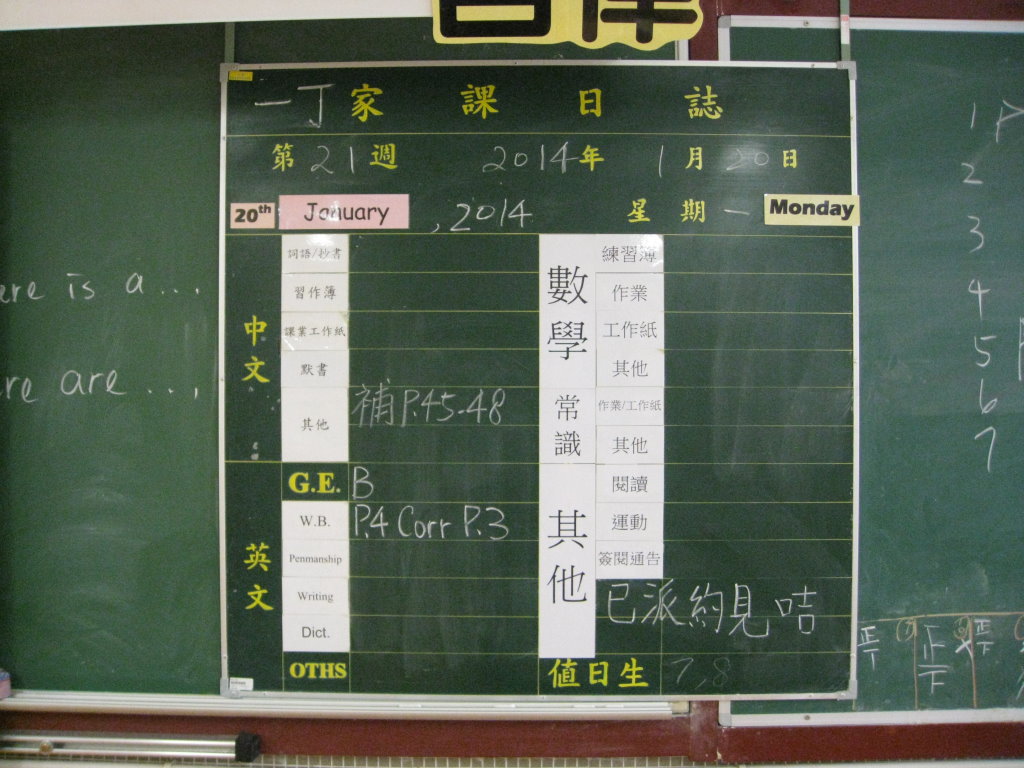 一丁家課日誌
第21週 2014年1月20日
20th January, 2014 星期一 Monday
中文
詞語/抄書
習作簿
課業工作紙
默書
其他 補P.45-48
英文
G.E. B
W.B. P.4 Corr P.3
Penmanship
Writing
Dict.
OTHS
數學
練習簿
作業
工作紙
其他
常識
作業/工作紙
其他
其他
閱讀
運動
簽閱通告
已派約見咭
值日生 7,8
ere is a ...
re are ...,
1
2
3
4
5
6
7